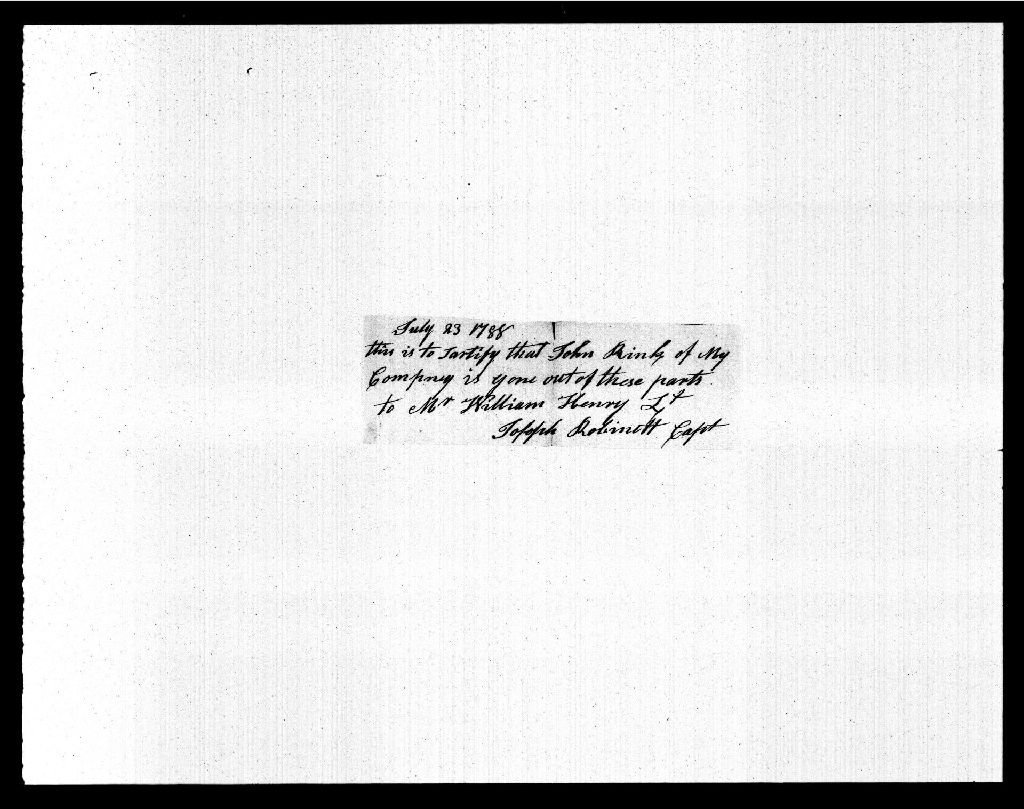 July 23 1788
this is to Sartify that John Rinly of My
Compney is gone out of these parts.
to Mr William Henry Lt
Joseph Robinett Capt